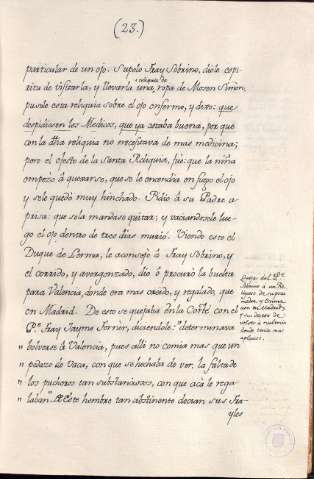 (23.)
particular de un ojo. Supolo Fray Sobrino, diole espi-
ritu de visitarla, y llevarla una, reliquia de ropa de Mosen Simon,
pusole esta reliquia sobre el ojo enfermo, y dixo: que
despidiesen los Medicos, que ya estaba buena, por que
con la dha reliquia no necesitava de mas medicina;
pero el efecto de la Santa Reliquia, fue: que la niña
empezo á quexarse, que se le encendia en fuego el ojo
y se le quedó muy hinchado. Pidio á su Padre a-
prisa: que se la mandase quitar; y vaciandosele lue-
go el ojo dentro de tres dias murió. Viendo esto el
Duque de Lerma, le aconsejó á Fray Sobrino, y
el corrido, y avergonzado, dio ó procuró la buelta
para Valencia, donde era mas creido, y regalado, que
en Madrid. De esto se quejaba en la Corte con el
Pe. Fray Jayme Ferrer, diciendole: determinava
bolverse á Valencia, pues alli no comia mas que un
pedazo de Vaca, con que se hechaba de ver, la falta de
los pucheros tan substanciosos, con que acá le rega-
laban. A Este hombre tan abstinente decian sus Fra-
yles
Quexa del Pe.
Sobrino á un Re-